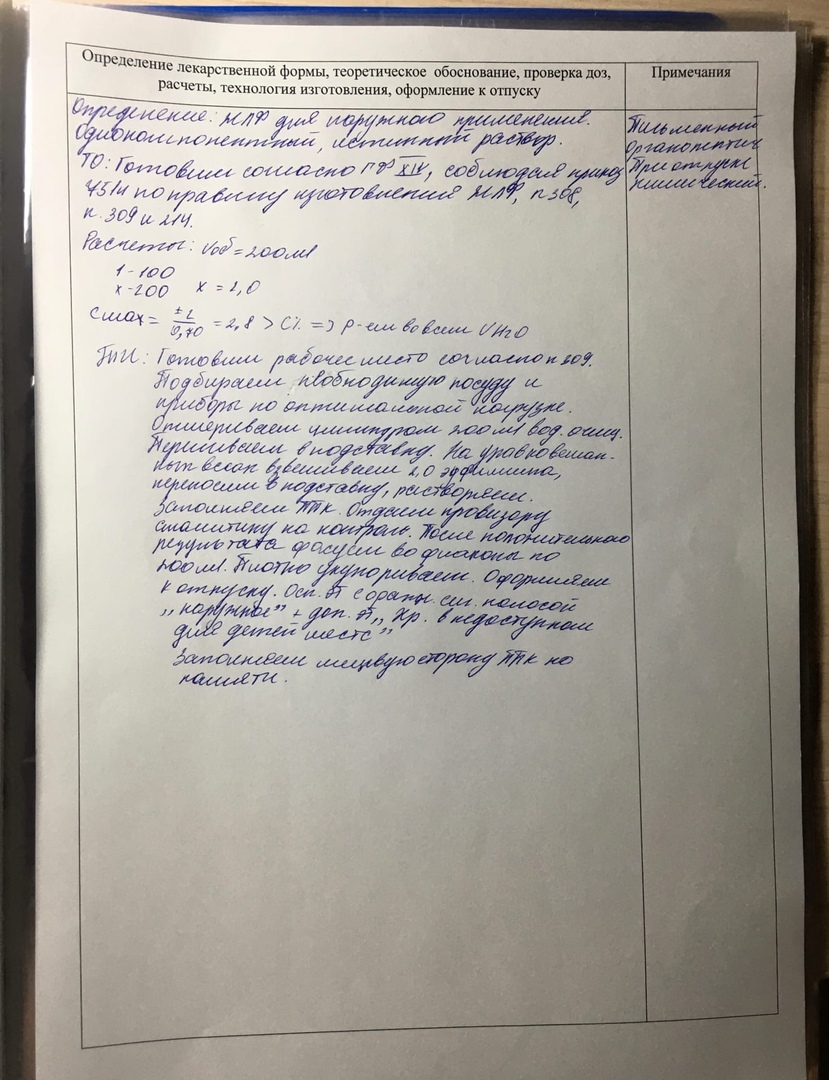 Определение лекарственной формы, теоретическое обоснование, проверка доз,
расчеты, технология изготовления, оформление к отпуску
Примечания
Определение: ЖЛФ для наружного применения.
Однокомпонентный, истинный раствор.
ТО: Готовим согласно ГФ XIV, соблюдая приказ
751н по правилу изготовления ЖЛФ, п 308,
п. 309 и 214.
Расчеты: Vоб = 200 мл
1 - 100
x - 200 x = 2,0
Cmax = ±2/0,70 = 2,8 > C% => р-ем во всем VH2O
ТИ: Готовим рабочее место согласно п 309.
Подбираем необходимую посуду и
приборы по оптимальной нагрузке.
Отмериваем цилиндром 200 мл вод. очищ.
Переливаем в подставку. На уравновешен-
ных весах взвешиваем 2,0
переносим в подставку, растворяем.
Заполняем ППК. Отдаем провизору
аналитику на контроль. После положительного
результата фасуем во флаконы по
200 мл. Плотно укупориваем. Оформляем
к отпуску. Осн. Эт с оранж. сиг. полосой
„наружное" + доп. Эт „Хр. в недоступном
для детей месте"
Заполняем лицевую сторону ППК по
памяти.
Письменный
Органолептич
При отпуске
Химический.